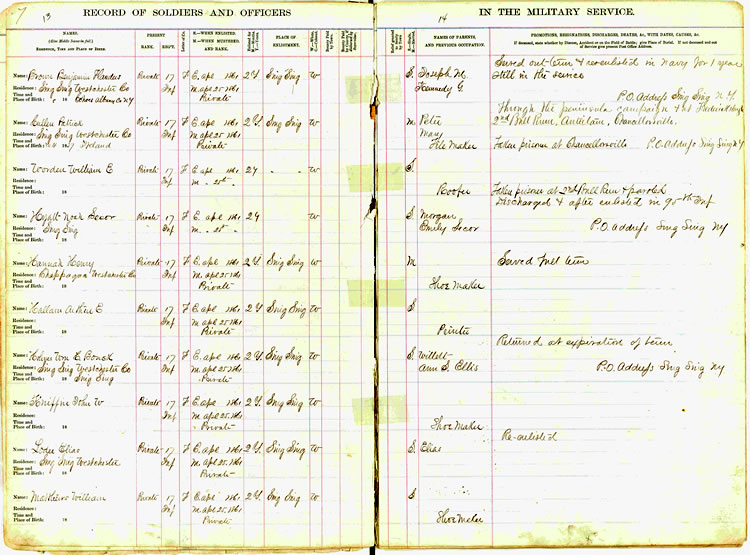 7
13
RECORD OF SOLDIERS AND OFFICERS
14
IN THE MILITARY SERVICE.
NAMES.
RESIDENCE, TIME AND PLACE OF BIRTH.
PRESENT RANK.
REG'T.
E.—WHEN ENLISTED. M.—WHEN MUSTERED. AND RANK.
PLACE OF ENLISTMENT.
NAMES OF PARENTS, AND PREVIOUS OCCUPATION.
PROMOTIONS, RESIGNATIONS, DISCHARGES, DEATHS, &c., WITH DATES, CAUSES, &c.
Name: Brown Benjamin Private 17 F E. Apl 1861 2 Y. Sing Sing W S. Joseph M. Served out term & reenlisted in Navy for 1 year
Residence: Sing Sing Westchester Co Inf M. apl 25. 1861 Kennedy G. still in the service
Time and Place of Birth: 18 Cohoes Albany Co NY Private P.O. Address Sing Sing N.Y.
Through the peninsula campaign & 1st Fredericksburg
Name: Cullen Patrick Private 17 F E. apl 1861 2 Y. Sing Sing W M Peter 2nd Bull Run, Antietam, Chancellorsville.
Residence: Sing Sing Westchester Co Inf M apl 25 1861 Mary
Time and Place of Birth: 18 Ireland Private File Maker Taken prisoner at Chancellorsville P.O. Address Sing Sing N.Y.
Name: Worden William E Private 17 F E. apl 1861 2 Y " " W S.
Residence: Inf M. " 25th "
Time and Place of Birth: 18 Roofer Taken prisoner at 2nd Bull Run & paroled
Discharged & after enlisted in 95th Inf
Name: Hyatt Noah Secor Private 17 F E. apl 1861 2 Y W S. Morgan
Residence: Sing Sing Inf M. " 25th " Emily Secor P.O. address Sing Sing NY
Time and Place of Birth: 18
Name: Hannah Henry Private 17 F E. apl 1861 2 Y Sing Sing W M Served full term
Residence: Chappaqua Westchester Co Inf M apl 25. 1861
Time and Place of Birth: 18 Private Shoe Maker
Name: Hallam E Private 17 F E. apl 1861 2 Y. Sing Sing W S
Residence: Inf M apl 25. 1861
Time and Place of Birth: 18 Private Printer
Returned at expiration of term
Name: Wm E Private 17 F E. apl 1861 2 Y. Sing Sing W S. Willett
Residence: Sing Sing Westchester Co Inf M apl 25. 1861 Ann S. Ellis P.O. Address Sing Sing NY
Time and Place of Birth: 18 Sing Sing Private
Name: Kniffin John W Private 17 F E. apl 1861 2 Y. Sing Sing W
Residence: Inf M apl 25. 1861
Time and Place of Birth: 18 Private Shoe Maker
Re-enlisted
Name: Elias Private 17 F E. apl 1861 2 Y. Sing Sing W S. Elias
Residence: Sing Sing Westchester Inf M apl 25. 1861
Time and Place of Birth: 18 Private
Name: Mathews William Private 17 F E. apl 1861 2 Y. Sing Sing W S
Residence: Inf M apl 25. 1861
Time and Place of Birth: 18 Private Shoe Maker